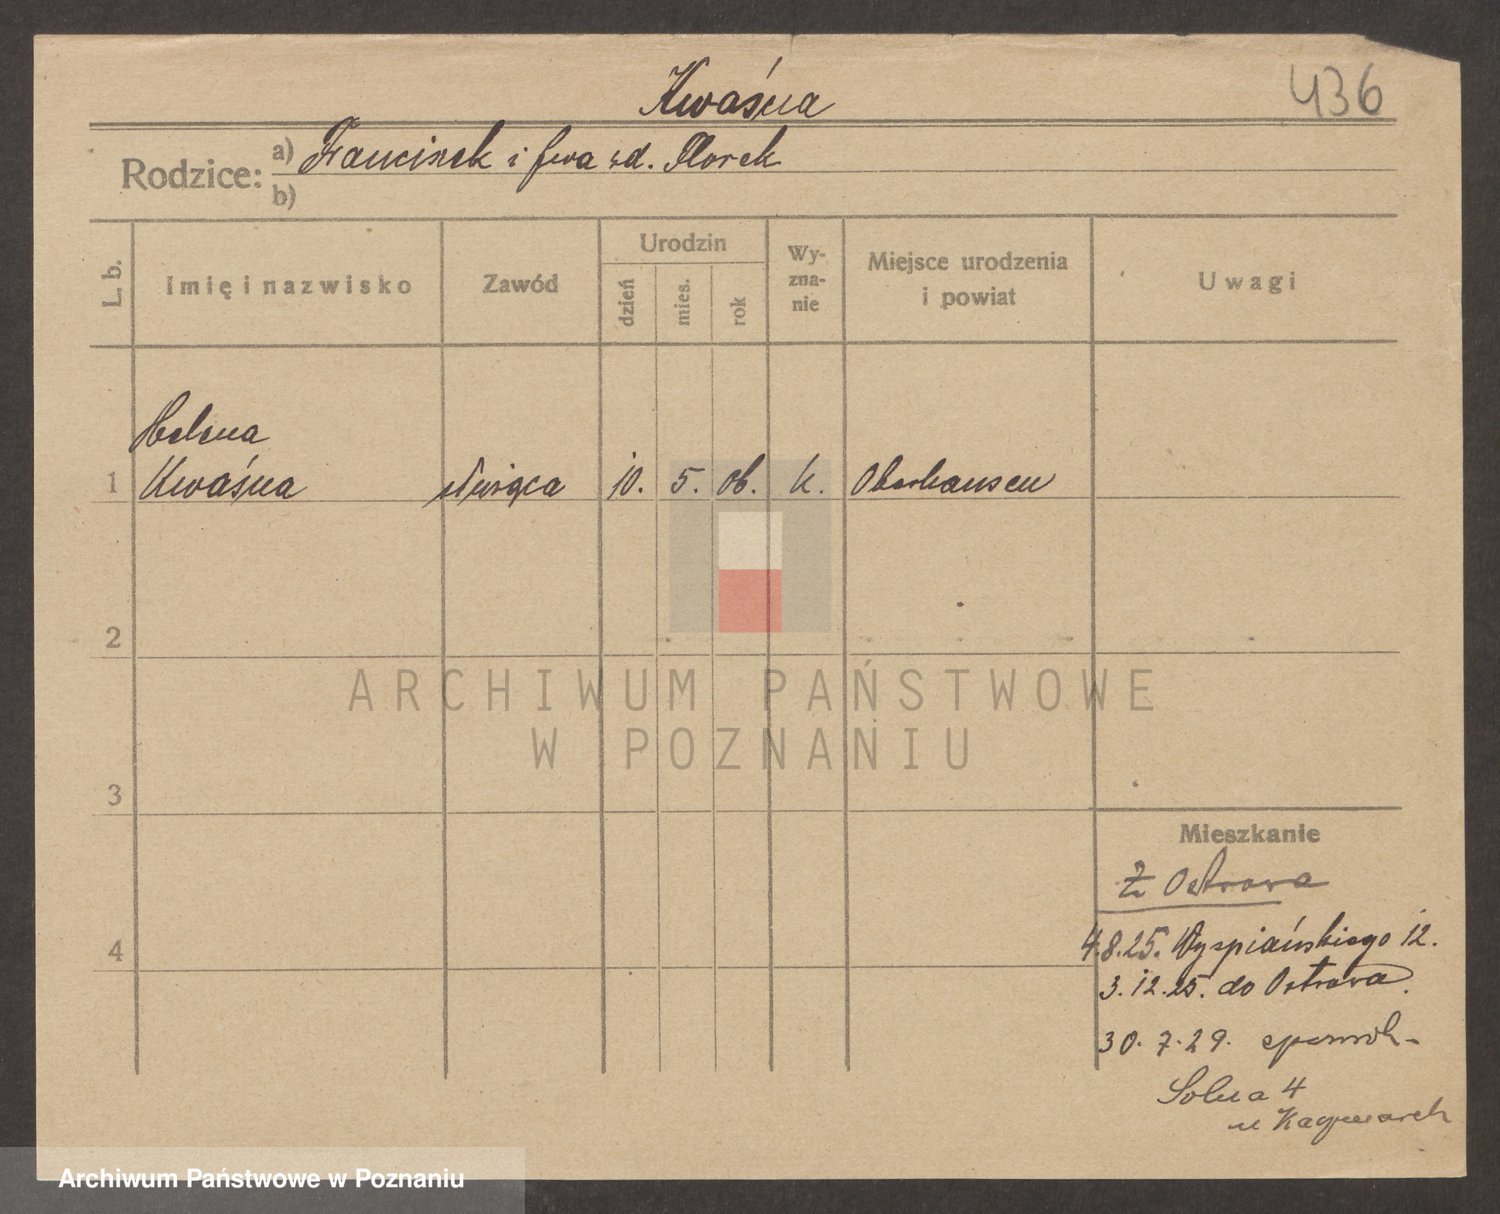 Kwaśna
436
Rodzice:
a) Franciszek i Ewa zd. Florek
b)
L. b.
Imię i nazwisko
Zawód
Urodzin
dzień
mies.
rok
Wy-
zna-
nie
Miejsce urodzenia
i powiat
Uwagi
Helena
1 Kwaśna służąca 10. 5. 06. k. Oberhausen
2
ARCHIWUM PAŃSTWOWE
W POZNANIU
3
Mieszkanie
Z Ostrowa
4
4.8.25. Wyspiańskiego 12.
3.12.25. do Ostrowa.
30.7.29.
Solna 4
u
Archiwum Państwowe w Poznaniu